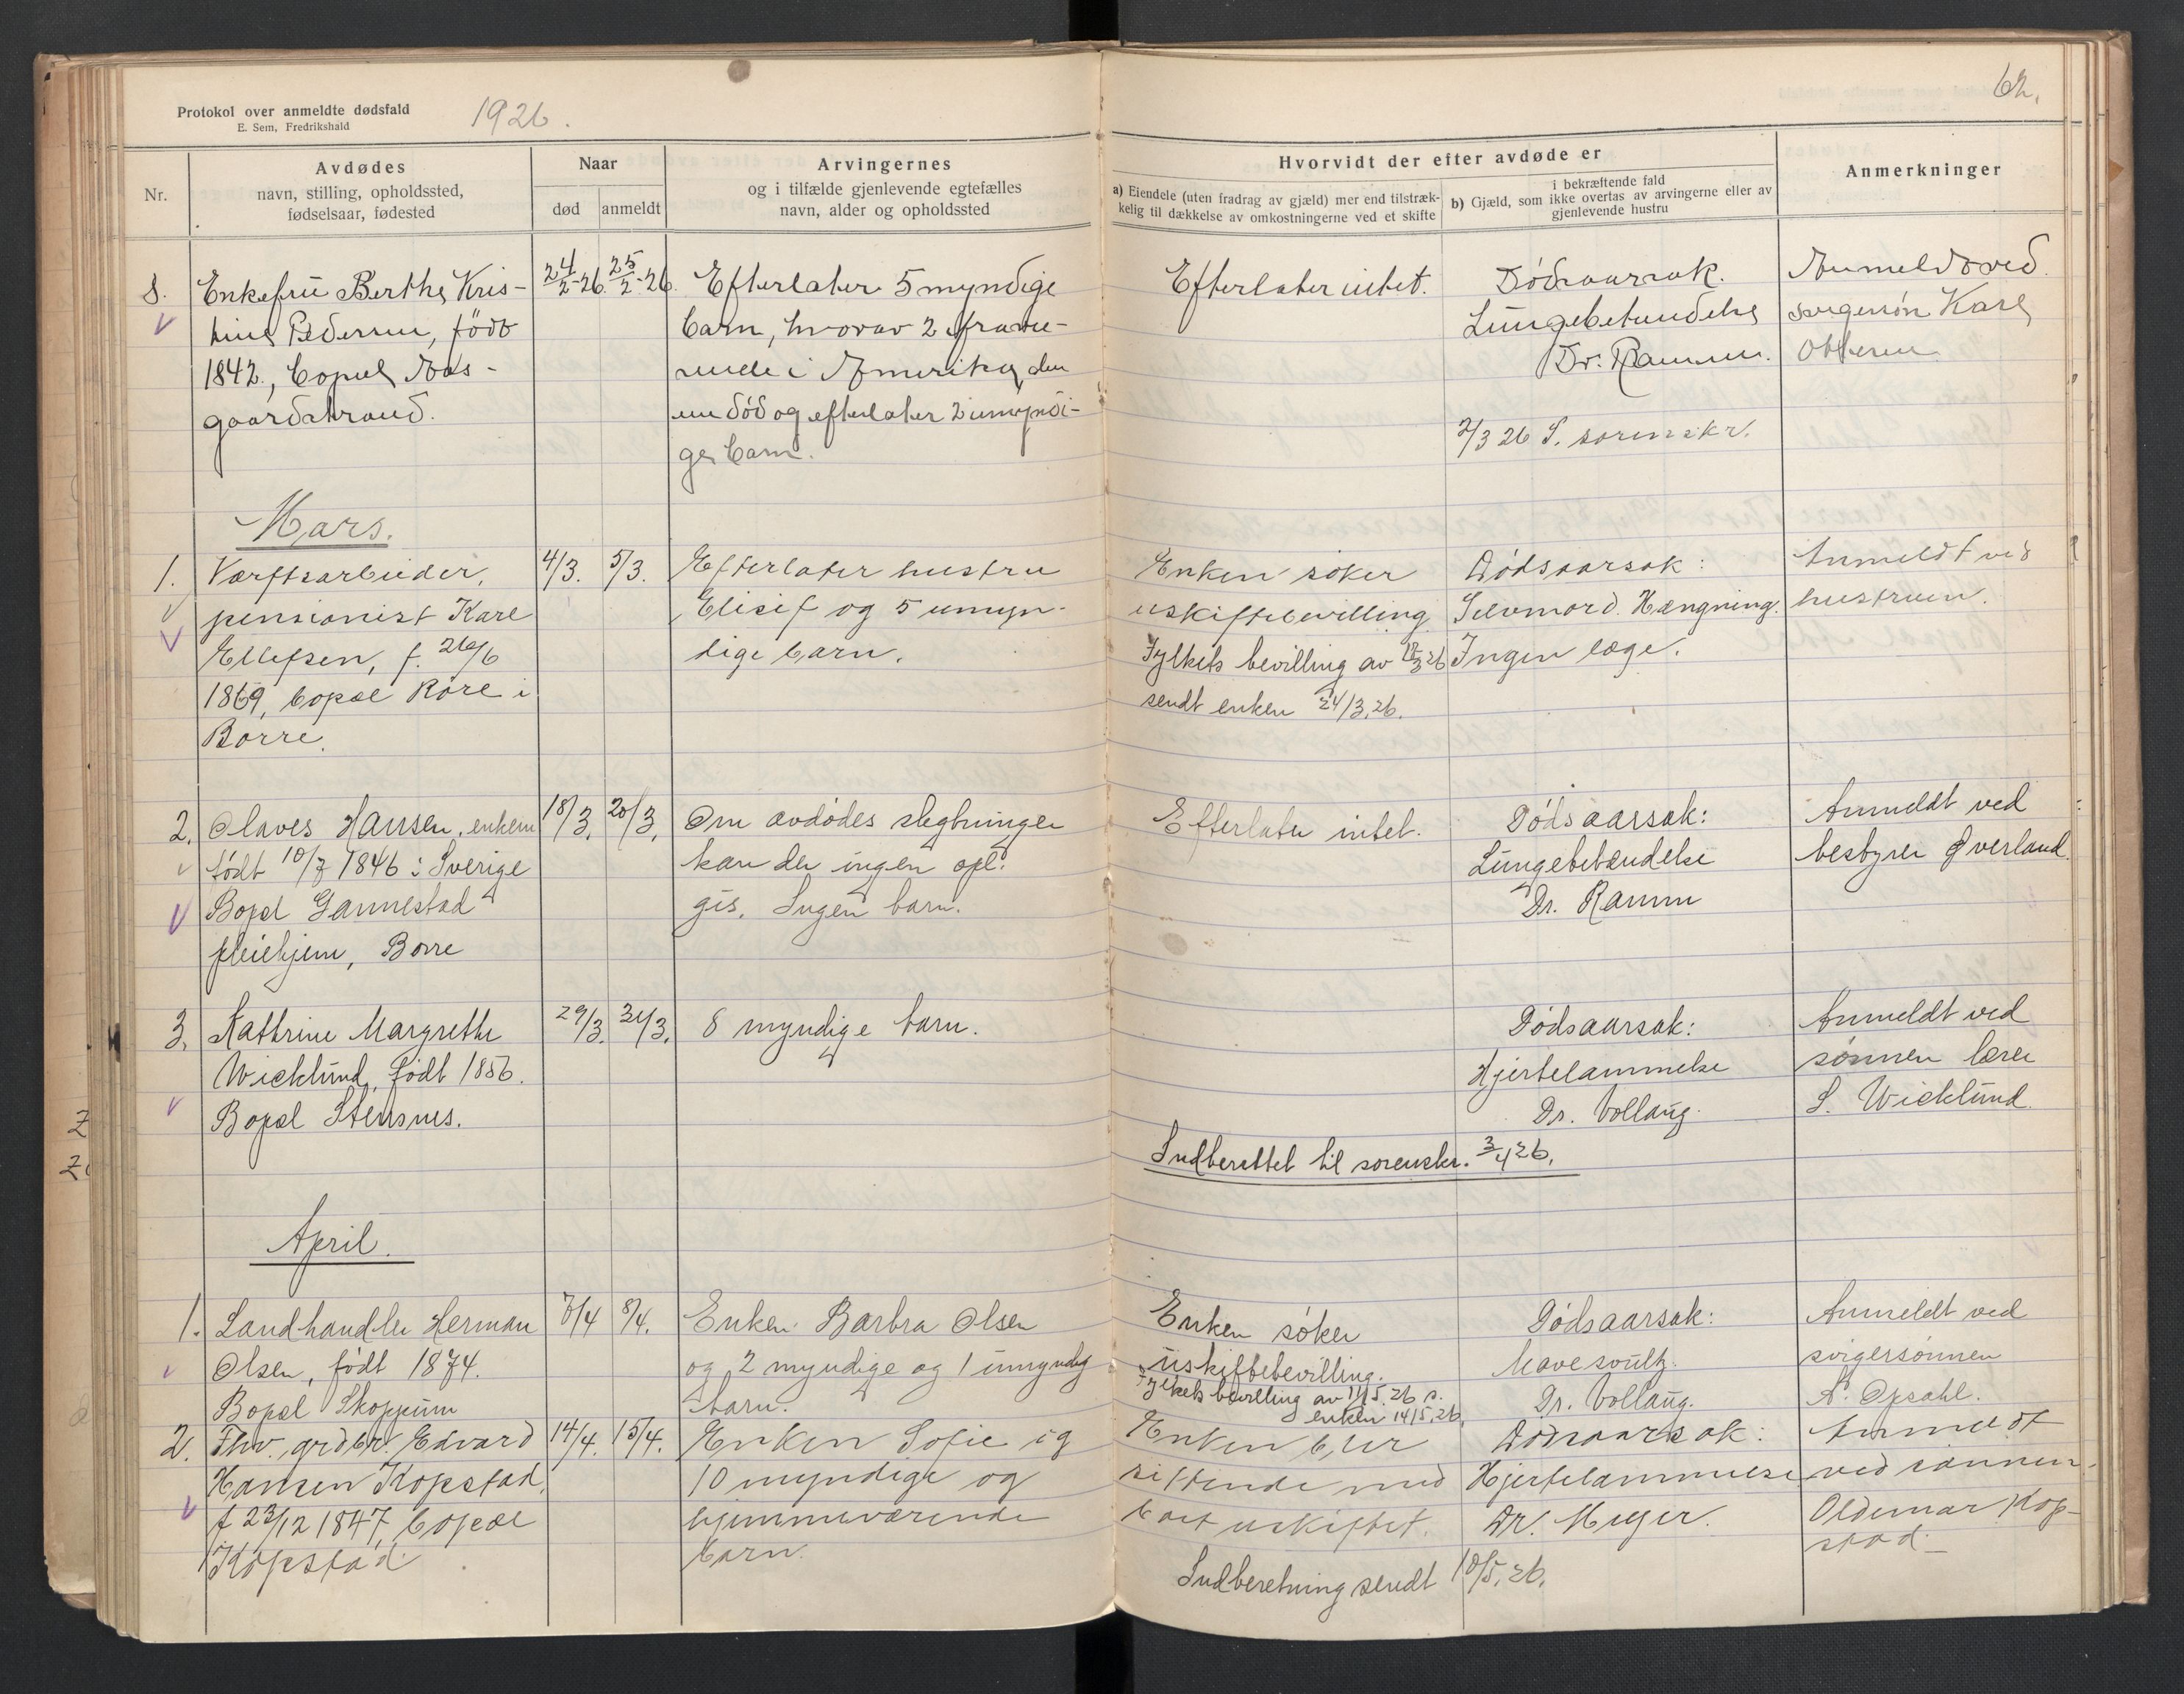 Protokol over anmeldte dødsfald
E. Sem, Fredrikshald
1926.
62.
Nr.
Avdødes
navn, stilling, opholdssted,
fødselsaar, fødested
Naar
død
anmeldt
Arvingernes
og i tilfælde gjenlevende egtefælles
navn, alder og opholdssted
Hvorvidt der efter avdøde er
a) Eiendele (uten fradrag av gjæld) mer end tilstræk-
kelig til dækkelse av omkostningerne ved et skifte
i bekræftende fald
b) Gjæld, som ikke overtas av arvingerne eller av
gjenlevende hustru
Anmerkninger
8.
Enkefru Berthe Kris-
tine Pedersen, født
1842., bopæl
gaardstrand.
24/2-26.
25/2-26.
Efterlater 5 myndige
barn, hvorav 2 fravæ-
rende i Amerika, den
ene død og efterlater 2 umyndi-
ge barn.
Efterlater intet.
Dødsaarsak.
Lungebetændelse
Dr. Ramm.
2/3 26 S. sorenskr.
Anmeldt ved
svigersøn Karl
Mars.
1.
Værftsarbeider,
pensionist Karl
Ellefsen, f. 26/6
1869, bopæl Røre i
Borre.
4/3.
5/3.
Efterlater hustru
Elisif og 5 umyn-
dige barn.
Enken søker
uskiftebevilling
Fylkets bevilling av 18/3 26
sendt enken 24/3.26.
Dødsaarsak:
Selvmord. Hængning.
Ingen læge.
Anmeldt ved
hustruen.
2.
Olaves Hansen, enkem
født 10/7 1846 i Sverige
Bopæl Gannestad
pleiehjem, Borre
18/3.
20/3.
Om avdødes slegtninger
kan der ingen opl.
gis. Ingen barn.
Efterlater intet.
Dødsaarsak:
Lungebetændelse
Dr. Ramm
Anmeldt ved
bestyrer Øverland.
3.
Kathrine Margrethe
Wicklund, født 1856.
Bopæl Stensnes.
29/3.
31/3.
8 myndige barn.
Dødsaarsak:
Hjertelammelse
Dr. Vollaug.
Anmeldt ved
sønnen lærer
S. Wicklund.
Indberettet til sorenskr. 3/4 26.
April.
1.
Landhandler Herman
Olsen, født 1874.
Bopæl Skoppum
7/4
8/4.
Enken Barbra Olsen
og 2 myndige og 1 umyndig
barn.
Enken søker
uskiftebevilling.
Fylkets bevilling av 11/5.26 s.
enken 14/5.26.
Dødsaarsak:
Mavesvulst.
Dr. Vollaug.
Anmeldt ved
svigersønnen
A. Opsahl.
2.
Fhv. grdbr. Edvard
Hansen Kopstad,
f 23/12 1847, bopæl
Kopstad.
14/4.
15/4.
Enken Sofie og
10 myndige og
hjemmeværende
barn.
Enken blir
sittende med
boet uskiftet.
Dødsaarsak:
Hjertelammelse
Dr. Meyer.
Anmeldt
ved sønnen
Oldemar Kop-
stad.
Indberetning sendt 10/5.26.